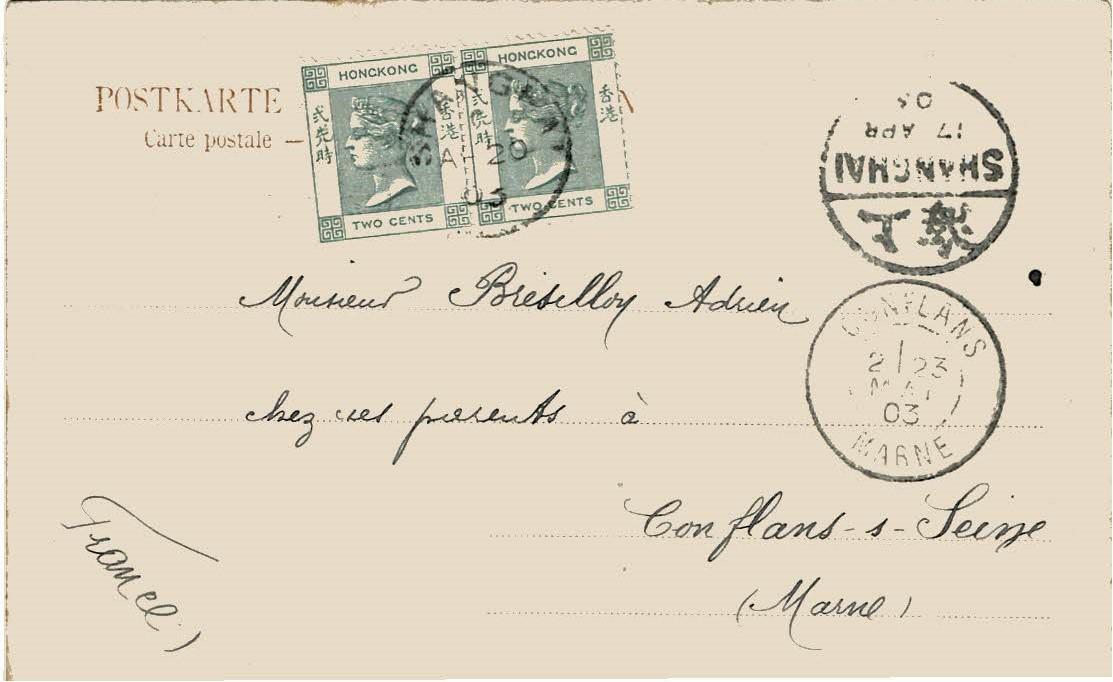 POSTKARTE
Carte postale —
HONGKONG
香港
貳先時
TWO CENTS
HONGKONG
香港
貳先時
TWO CENTS
SHANGHAI
20
03
上海
SHANGHAI
17 APR
03
CONFLANS
2 23
MAI
03
MARNE
Monsieur Brésilloy Adrien
chez ses parents à
Conflans-s-Seine
(Marne)
France)